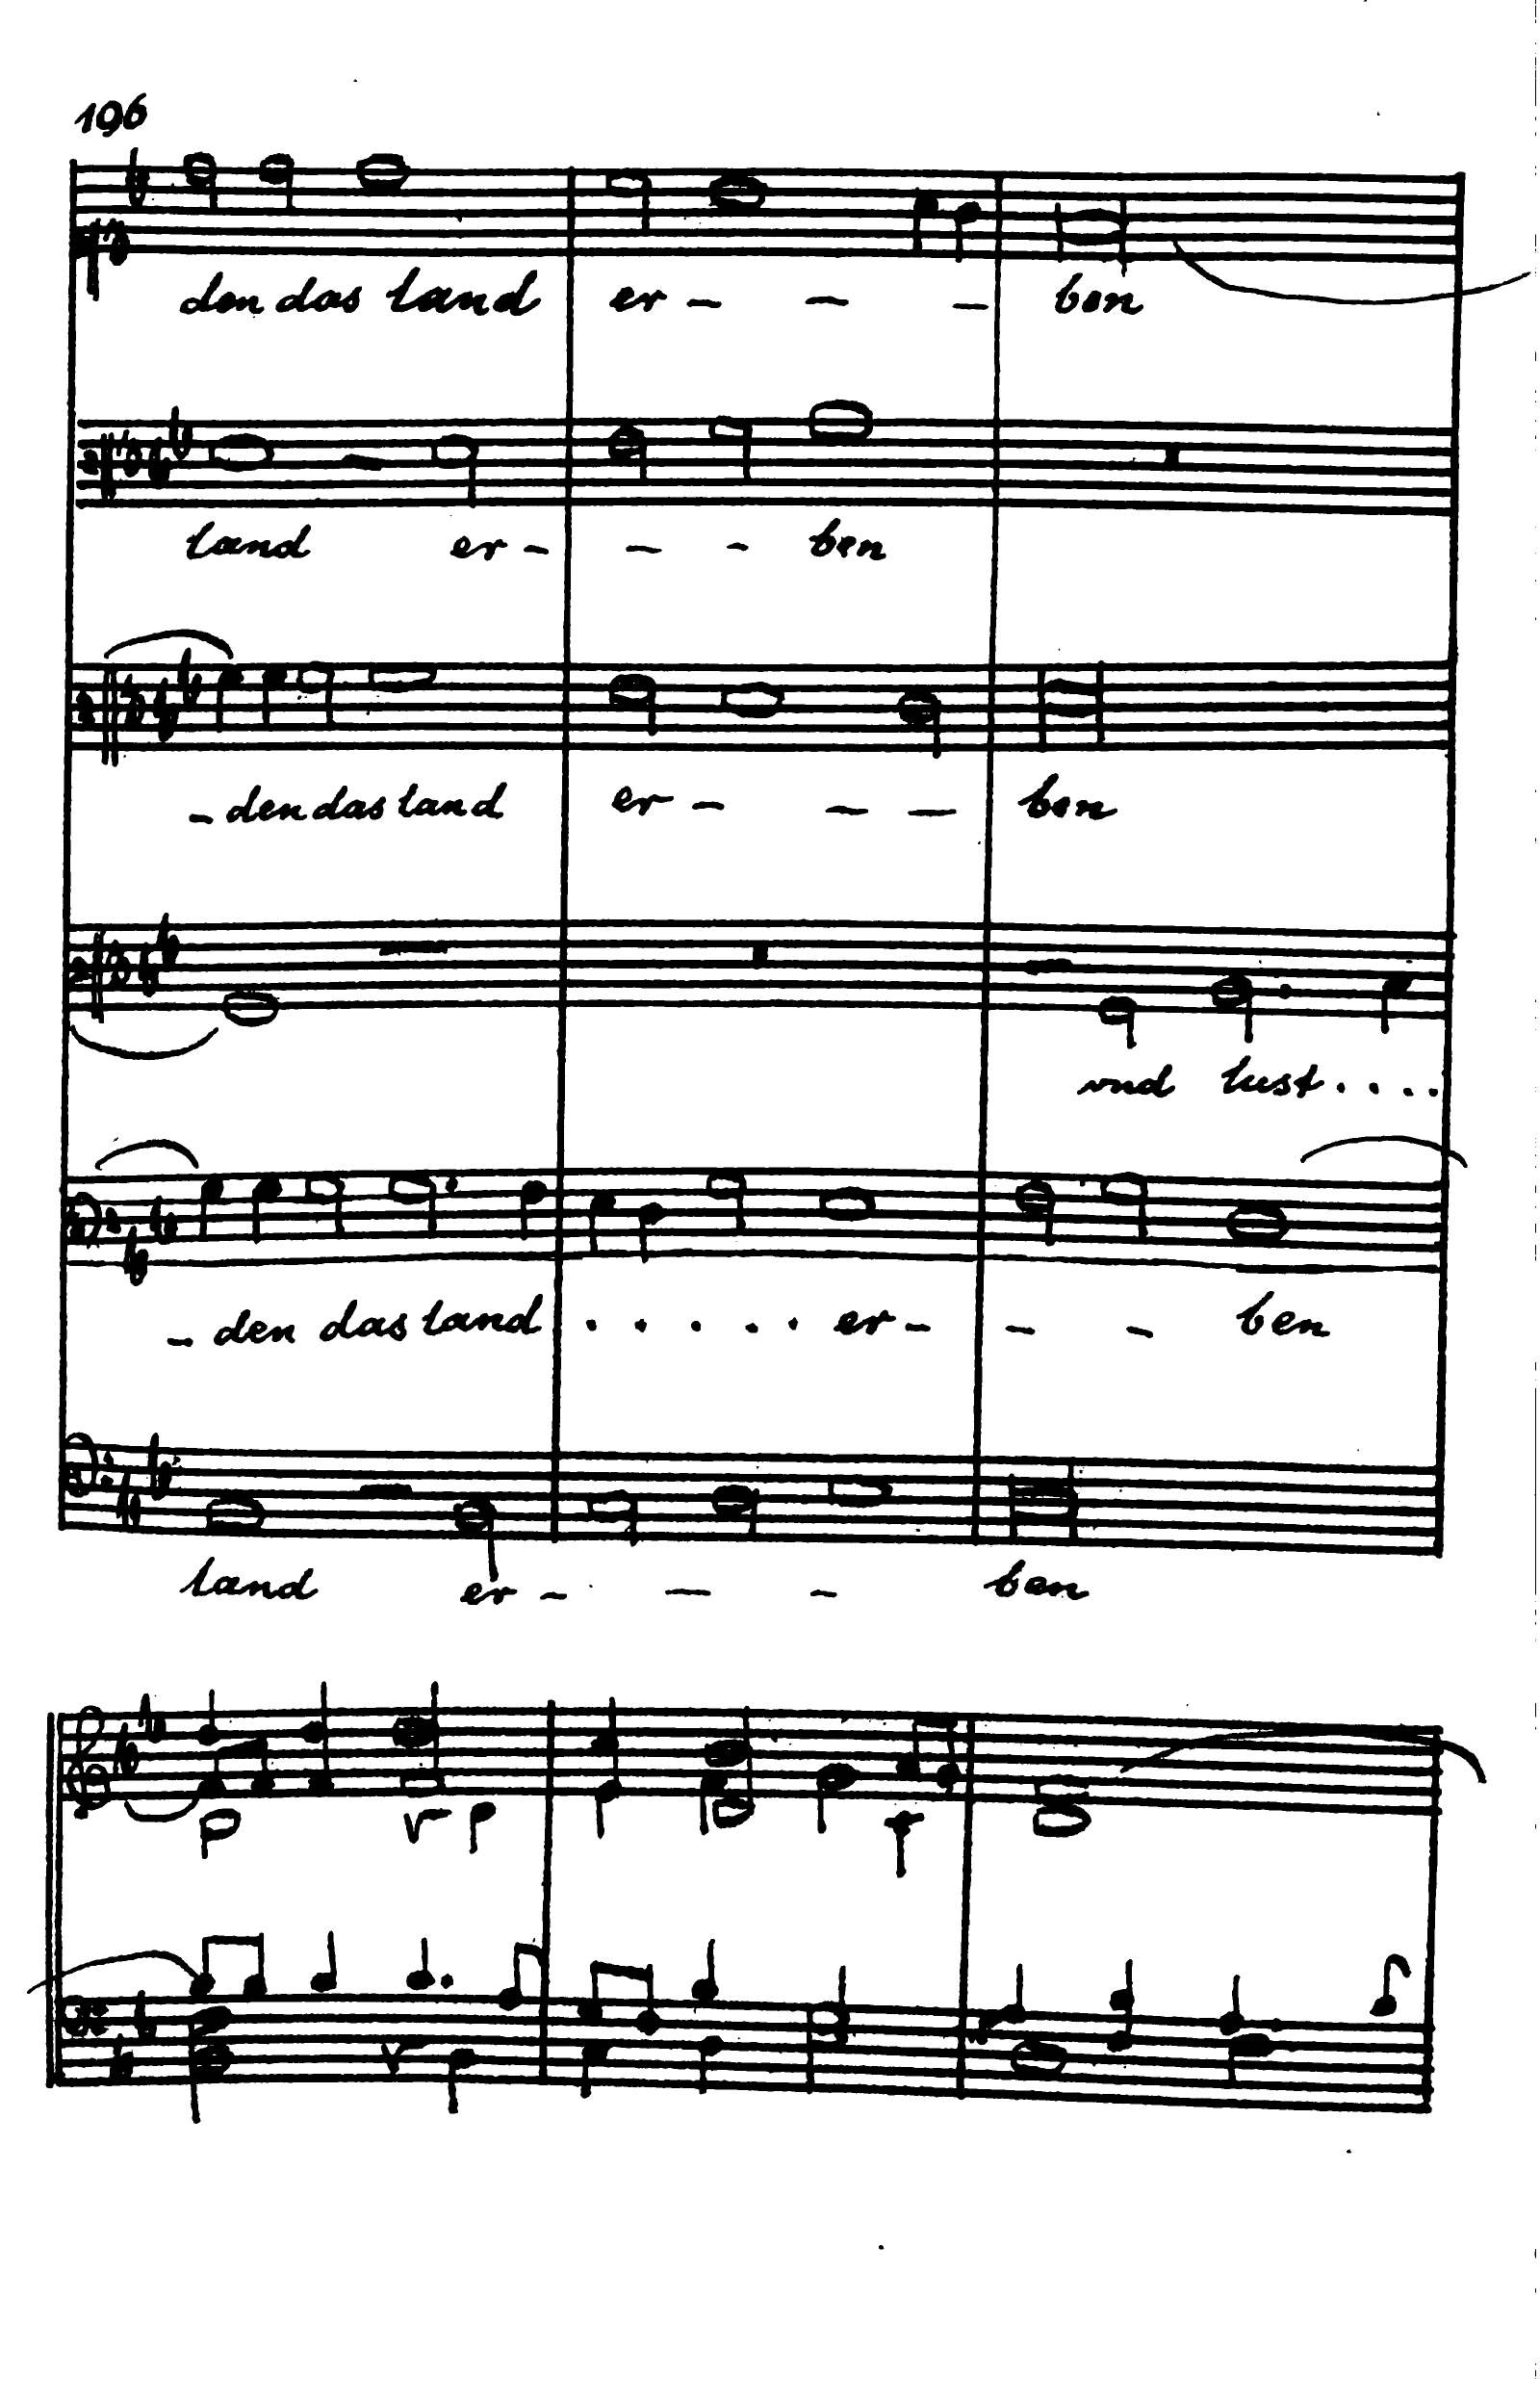 196
den das land er - - - ben
land er - - - ben
- den das land er - - - ben
vnd lust . . . .
- den das land . . . . . er - - - ben
land er - - - ben